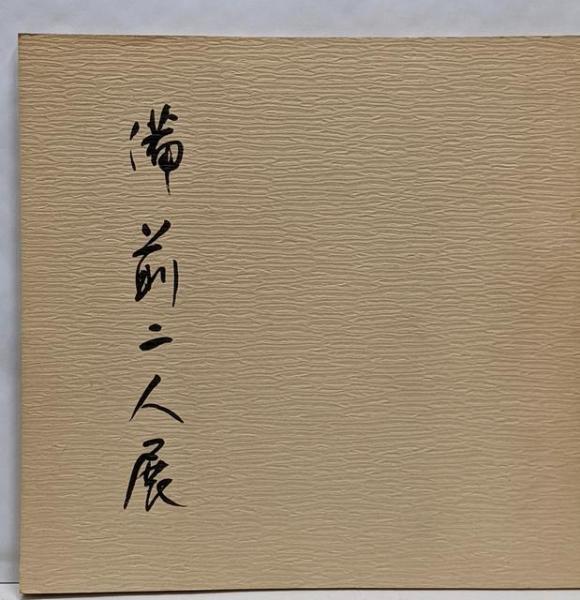 備前二人展